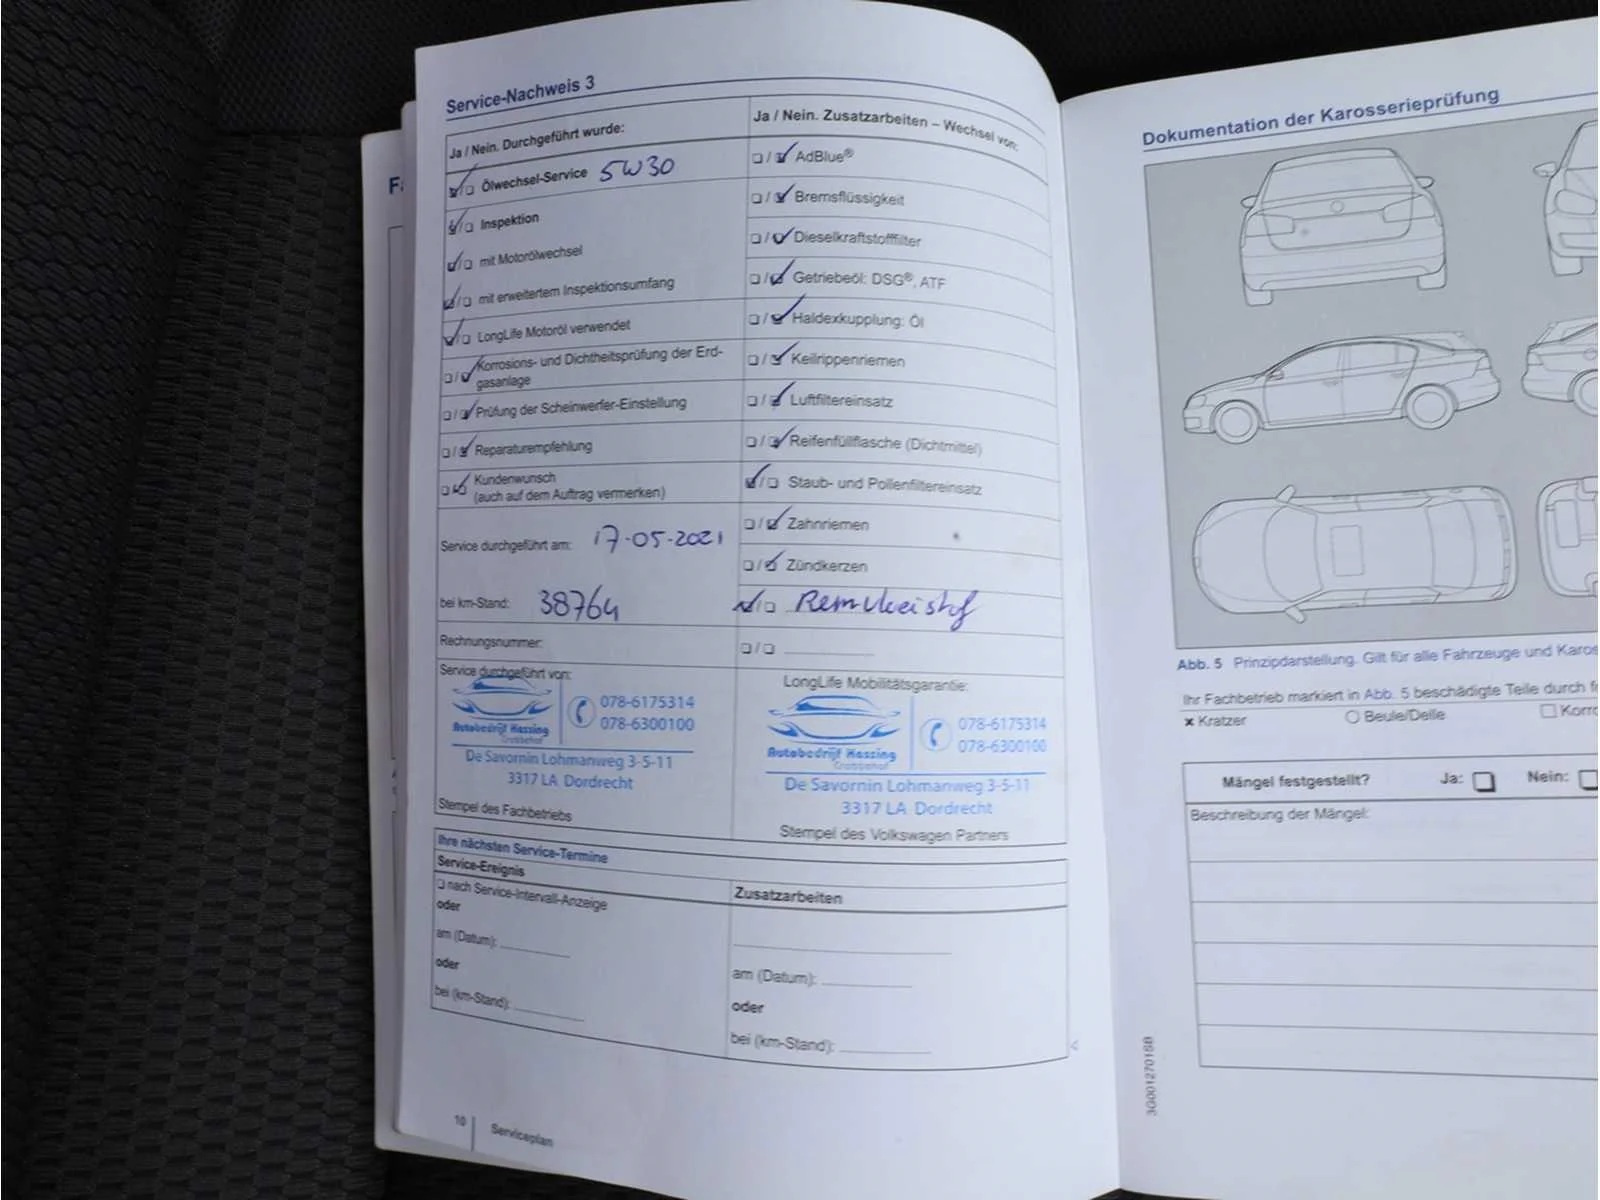 Service-Nachweis 3
Ja / Nein. Durchgeführt wurde:
Ölwechsel-Service 5W30
Inspektion
mit Motorölwechsel
mit erweitertem Inspektionsumfang
LongLife Motoröl verwendet
Korrosions- und Dichtheitsprüfung der Erd-
gasanlage
Prüfung der Scheinwerfer-Einstellung
Reparaturempfehlung
Kundenwunsch
(auch auf dem Auftrag vermerken)
Service durchgeführt am: 17-05-2021
bei km-Stand: 38764
Rechnungsnummer:
Service durchgeführt von:
078-6175314
078-6300100
Autobedrijf Hassing
De Savornin Lohmanweg 3-5-11
3317 LA Dordrecht
Stempel des Fachbetriebs
Ja / Nein. Zusatzarbeiten – Wechsel von:
AdBlue®
Bremsflüssigkeit
Dieselkraftstofffilter
Getriebeöl: DSG®, ATF
Haldexkupplung: Öl
Keilrippenriemen
Luftfiltereinsatz
Reifenfüllflasche (Dichtmittel)
Staub- und Pollenfiltereinsatz
Zahnriemen
Zündkerzen
Remvloeistof
LongLife Mobilitätsgarantie:
078-6175314
078-6300100
Autobedrijf Hassing
De Savornin Lohmanweg 3-5-11
3317 LA Dordrecht
Stempel des Volkswagen Partners
Ihre nächsten Service-Termine
Service-Ereignis
nach Service-Intervall-Anzeige
oder
am (Datum):
oder
bei (km-Stand):
Zusatzarbeiten
am (Datum):
oder
bei (km-Stand):
10
Serviceplan
Dokumentation der Karosserieprüfung
Abb. 5 Prinzipdarstellung. Gilt für alle Fahrzeuge und Karos
Ihr Fachbetrieb markiert in Abb. 5 beschädigte Teile durch f
× Kratzer
Beule/Delle
Korro
Mängel festgestellt? Ja: Nein:
Beschreibung der Mängel:
3G0012701SB